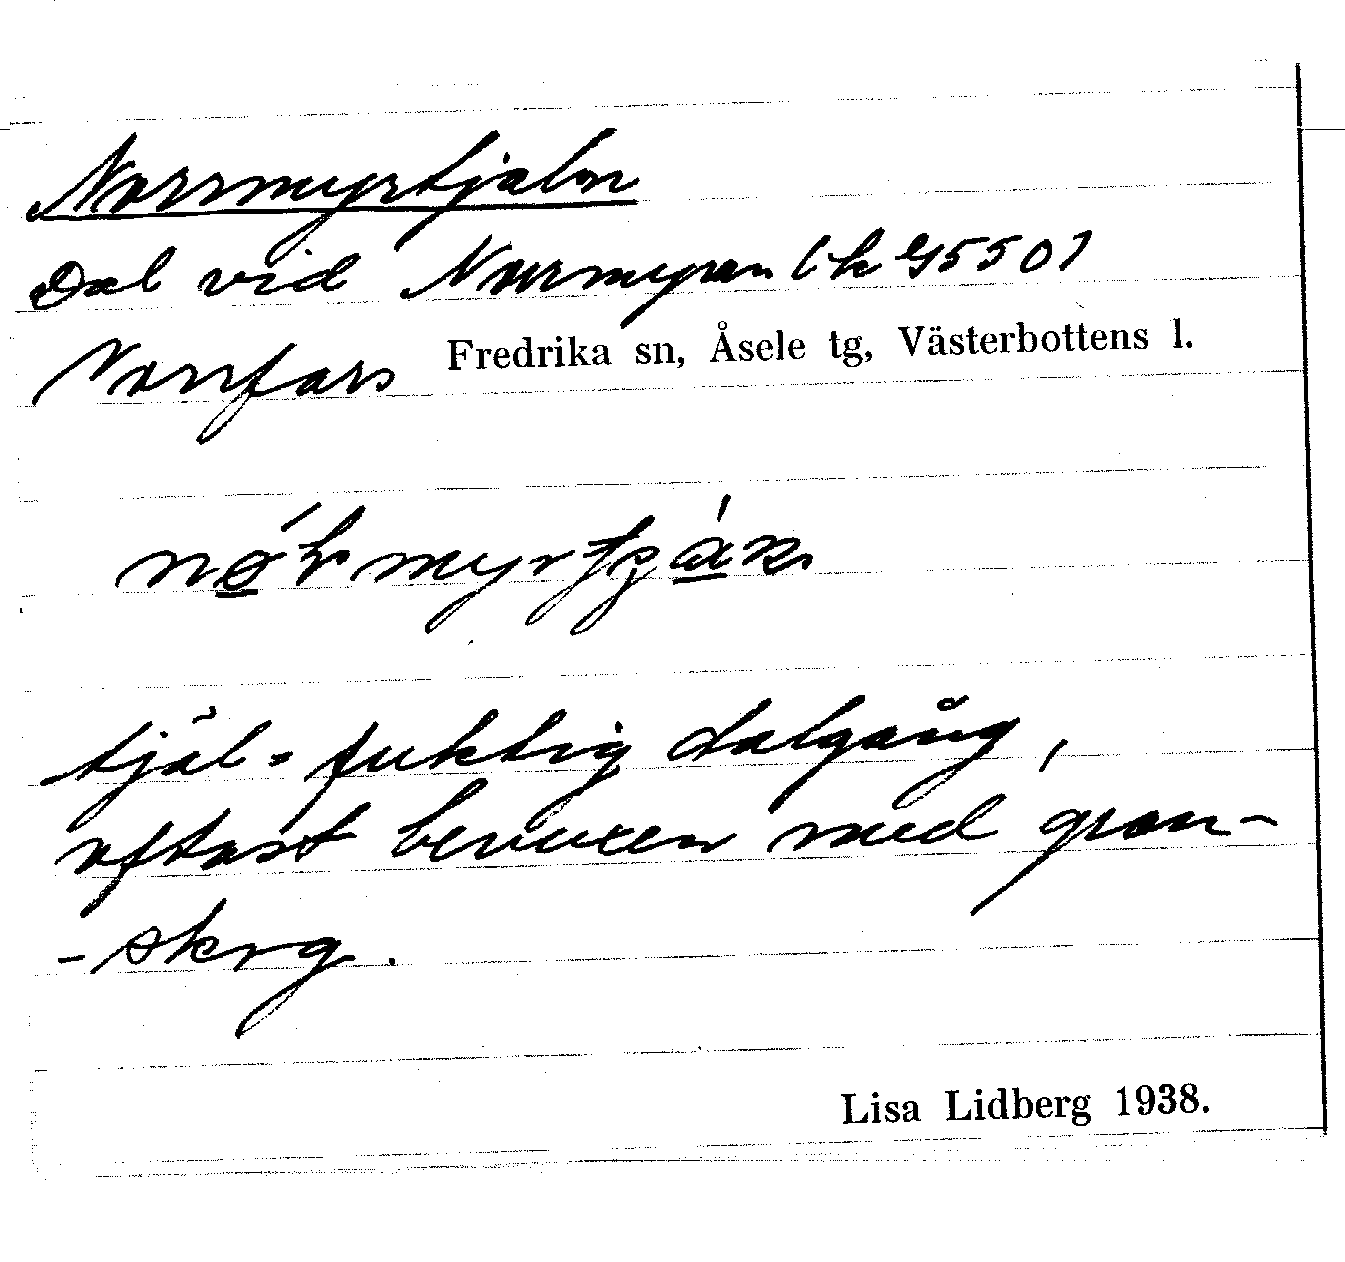 Norrmyrtjaln
Dal vid Norrmyran (h 4550)
Norrfors Fredrika sn, Åsele tg, Västerbottens l.
tjäl = fuktig dalgång,
oftast bevuxen med gran-
-skog.
Lisa Lidberg 1938.